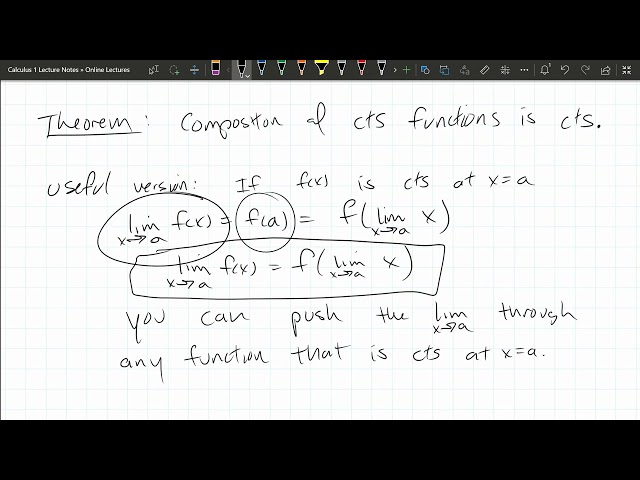 Calculus 1 Lecture Notes » Online Lectures
Theorem: Composition of cts functions is cts.
useful version: If f(x) is cts at x=a
lim x→a f(x) = f(a) = f(lim x→a x)
lim x→a f(x) = f(lim x→a x)
you can push the lim x→a through
any function that is cts at x=a.